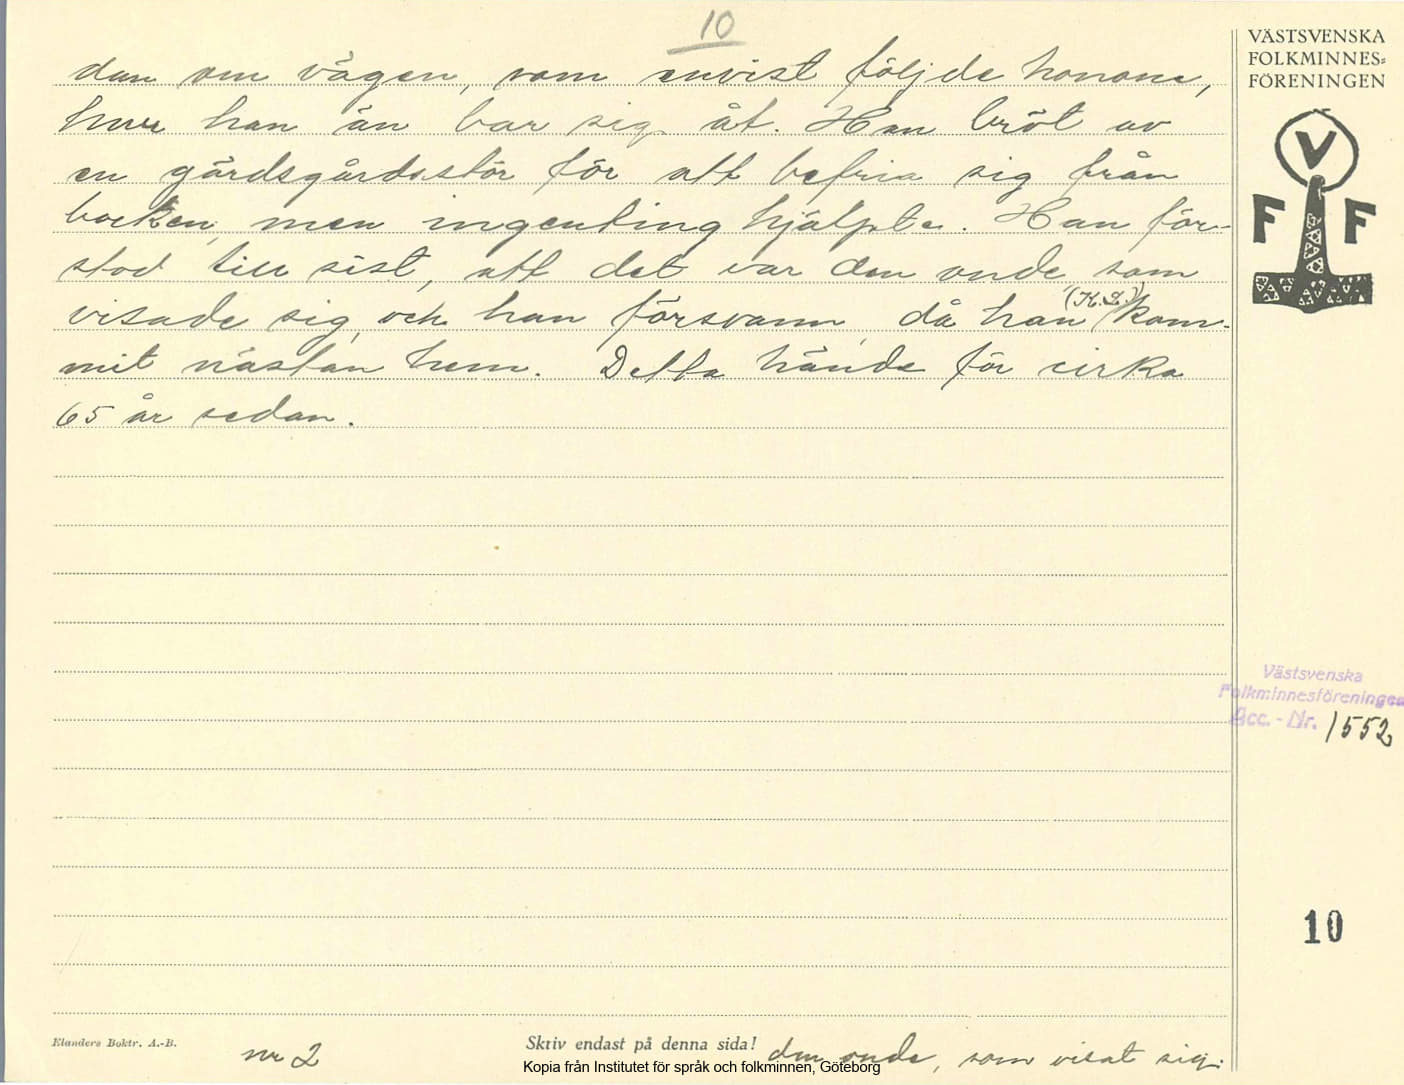 10
dan om vägen, som envist följde honom,
hur han än bar sig åt. Han bröt av
en gärdsgårdsstör för att befria sig från
bocken, men ingenting hjälpte. Han för-
stod till sist, att det var den onde som
visade sig, och han försvann, då han (K.S.) kom-
mit nästan hem. Detta hände för cirka
65 år sedan.
VÄSTSVENSKA
FOLKMINNES=
FÖRENINGEN
V
F F
Västsvenska
Folkminnesföreningen
Acc. - Nr. 1552
10
Elanders Boktr. A.-B.
nr 2
Skriv endast på denna sida!
den onde, som visat sig.
Kopia från Institutet för språk och folkminnen, Göteborg